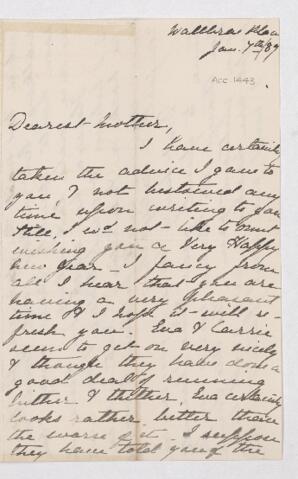 Jan. 7th/87
ACC 1443
Dearest Mother,
I have certainly
taken the advice I gave to
you & not bestowed any
time upon writing to you
still I wd not like to omit
wishing you a Very Happy
New Year – I fancy from
all I hear that you are
having a very pleasant
time & I hope it will re-
fresh you. Eva & Carrie
seem to get on very nicely
& though they have done a
good deal of running
hither & thither, Eva certainly
looks rather better than
the worse of it. I suppose
they have told you of the